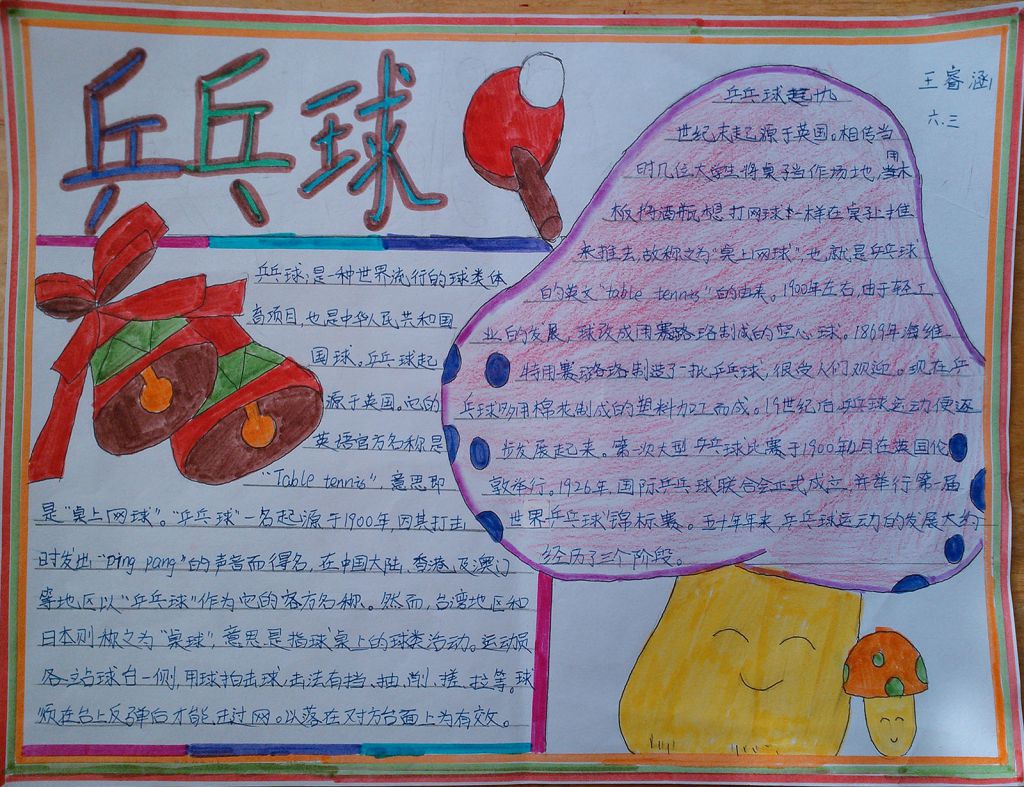 乒乓球
王睿涵
六.三
乒乓球,是一种世界流行的球类体
育项目,也是中华人民共和国
国球。乒乓球起
源于英国。它的
英语官方名称是
“Table tennis”,意思即
是“桌上网球”。“乒乓球”一名起源于1900年,因其打击
时发出“ping pang”的声音而得名,在中国大陆、香港、及澳门
等地区以“乒乓球”作为它的官方名称。然而,台湾地区和
日本则称之为“桌球”,意思是指球桌上的球类活动。运动员
各站球台一侧,用球拍击球,击法有挡、抽、削、搓、拉等。球
须在台上反弹后才能击过网。以落在对方台面上为有效。
乒乓球起九
世纪末起源于英国。相传当
时几位大学生将桌子当作场地,用木
板将酒瓶想打网球一样在桌上推
来推去,故称之为“桌上网球”,也就是乒乓球
的英文“table tennis”的由来。1900年左右,由于轻工
业的发展,球改成用赛璐珞制成的空心球。1869年海维
特用赛璐珞制造了一批乒乓球,很受人们欢迎。现在乒
乓球多用棉花制成的塑料加工而成。19世纪后乒乓球运动便逐
步发展起来。第一次大型乒乓球比赛于1900年12月在英国伦
敦举行。1926年,国际乒乓球联合会正式成立,并举行第一届
世界乒乓球锦标赛。五十年年来,乒乓球运动的发展大约
经历了三个阶段。